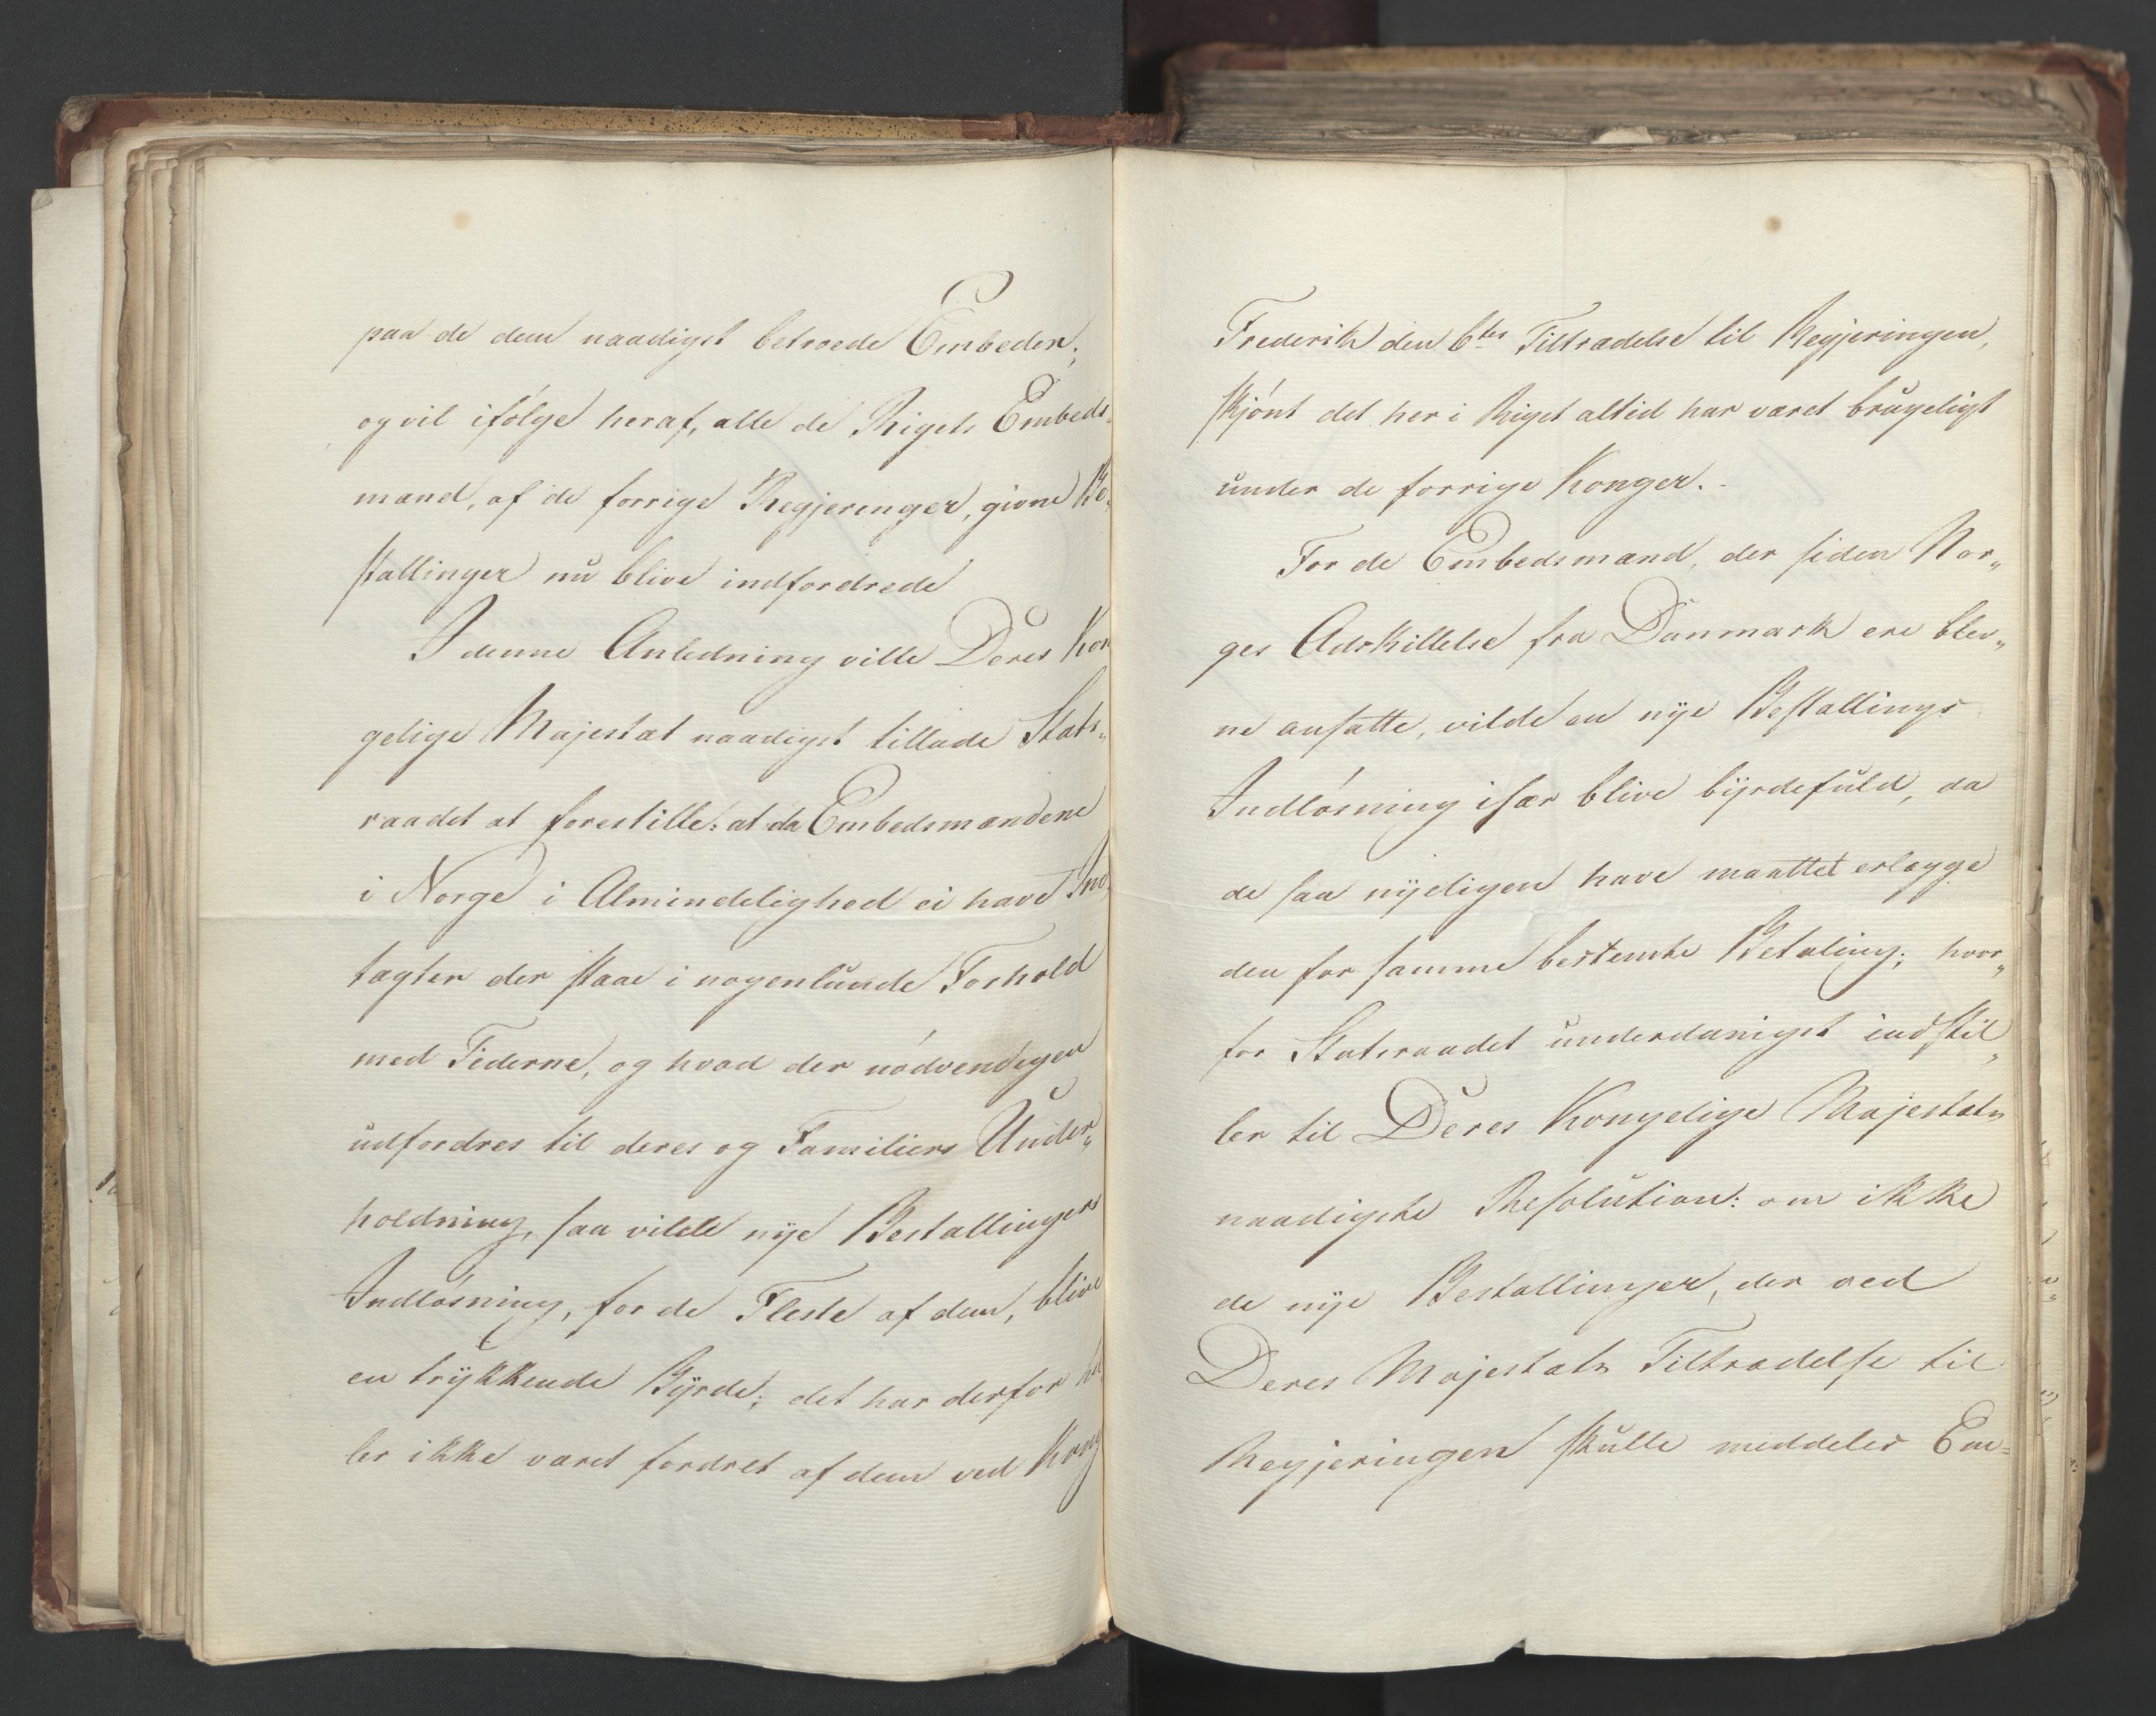 paa de dem naadigst betroede Embeder;
og vil ifølge heraf, alle de Rigets Embeds„
mænd, af de forrige Regjeringer, givne Be„
stallinger nu blive indfordrede
I denne Anledning ville Deres Kon
gelige Majestæt naadigst tillade Stats„
raadet at forestille: at da Embedsmændene
i Norge i Almindelighed ei have Ind
tægter der staae i nogenlunde Forhold
med Tiderne, og hvad der nødvendigen
udfordres til deres og Familiers Under„
holdning, saa vilde nye Bestallingers
Indløsning, for de Fleste af dem, blive
en trykkende Byrde; det har derfor hel
ler ikke været fordret af dem ved Kong
Frederik den 6tes Tiltrædelse til Regjeringen,
skjønt det her i Riget altid har været brugeligt
under de forrige Konger.
For de Embedsmænd, der siden Nor„
ges Adskillelse fra Danmark ere blev„
ne ansatte, vilde en nye Bestallings
Indløsning især blive byrdefuld, da
de saa nyeligen have maattet erlægge
den for samme bestemte Betaling; hvor„
for Statsraadet underdanigst indstil„
ler til Deres Kongelige Majestæts
naadigste Resolution: om ikke
de nye Bestallinger, der ved
Deres Majestæts Tiltrædelse til
Regjeringen skulle meddeles Em=